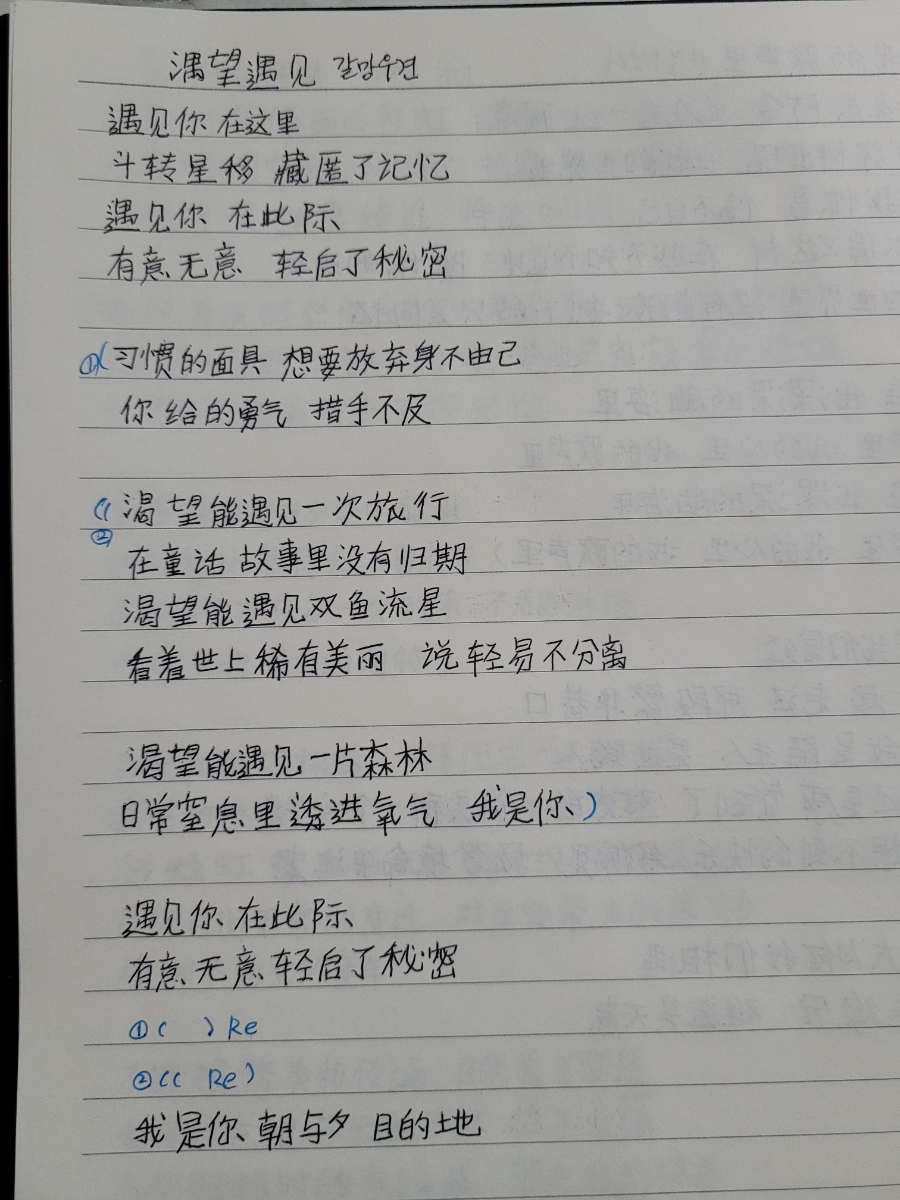 渴望遇见 갈망우견
遇见你 在这里
斗转星移 藏匿了记忆
遇见你 在此际
有意无意 轻启了秘密
①( 习惯的面具 想要放弃身不由己
你给的勇气 措手不及
(( 渴望能遇见一次旅行
②
在童话故事里没有归期
渴望能遇见双鱼流星
看着世上稀有美丽 说轻易不分离
渴望能遇见一片森林
日常窒息里透进氧气 我是你)
遇见你 在此际
有意无意轻启了秘密
①( ) Re
②(( Re)
我是你 朝与夕 目的地